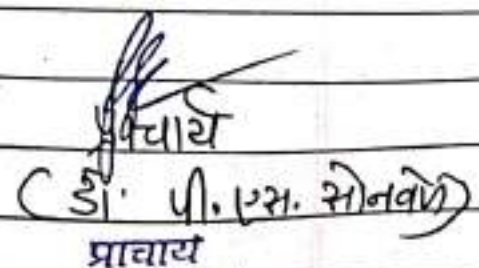 प्राचार्य
( डॉ. पी. एस. सोनवणे )
प्राचार्य